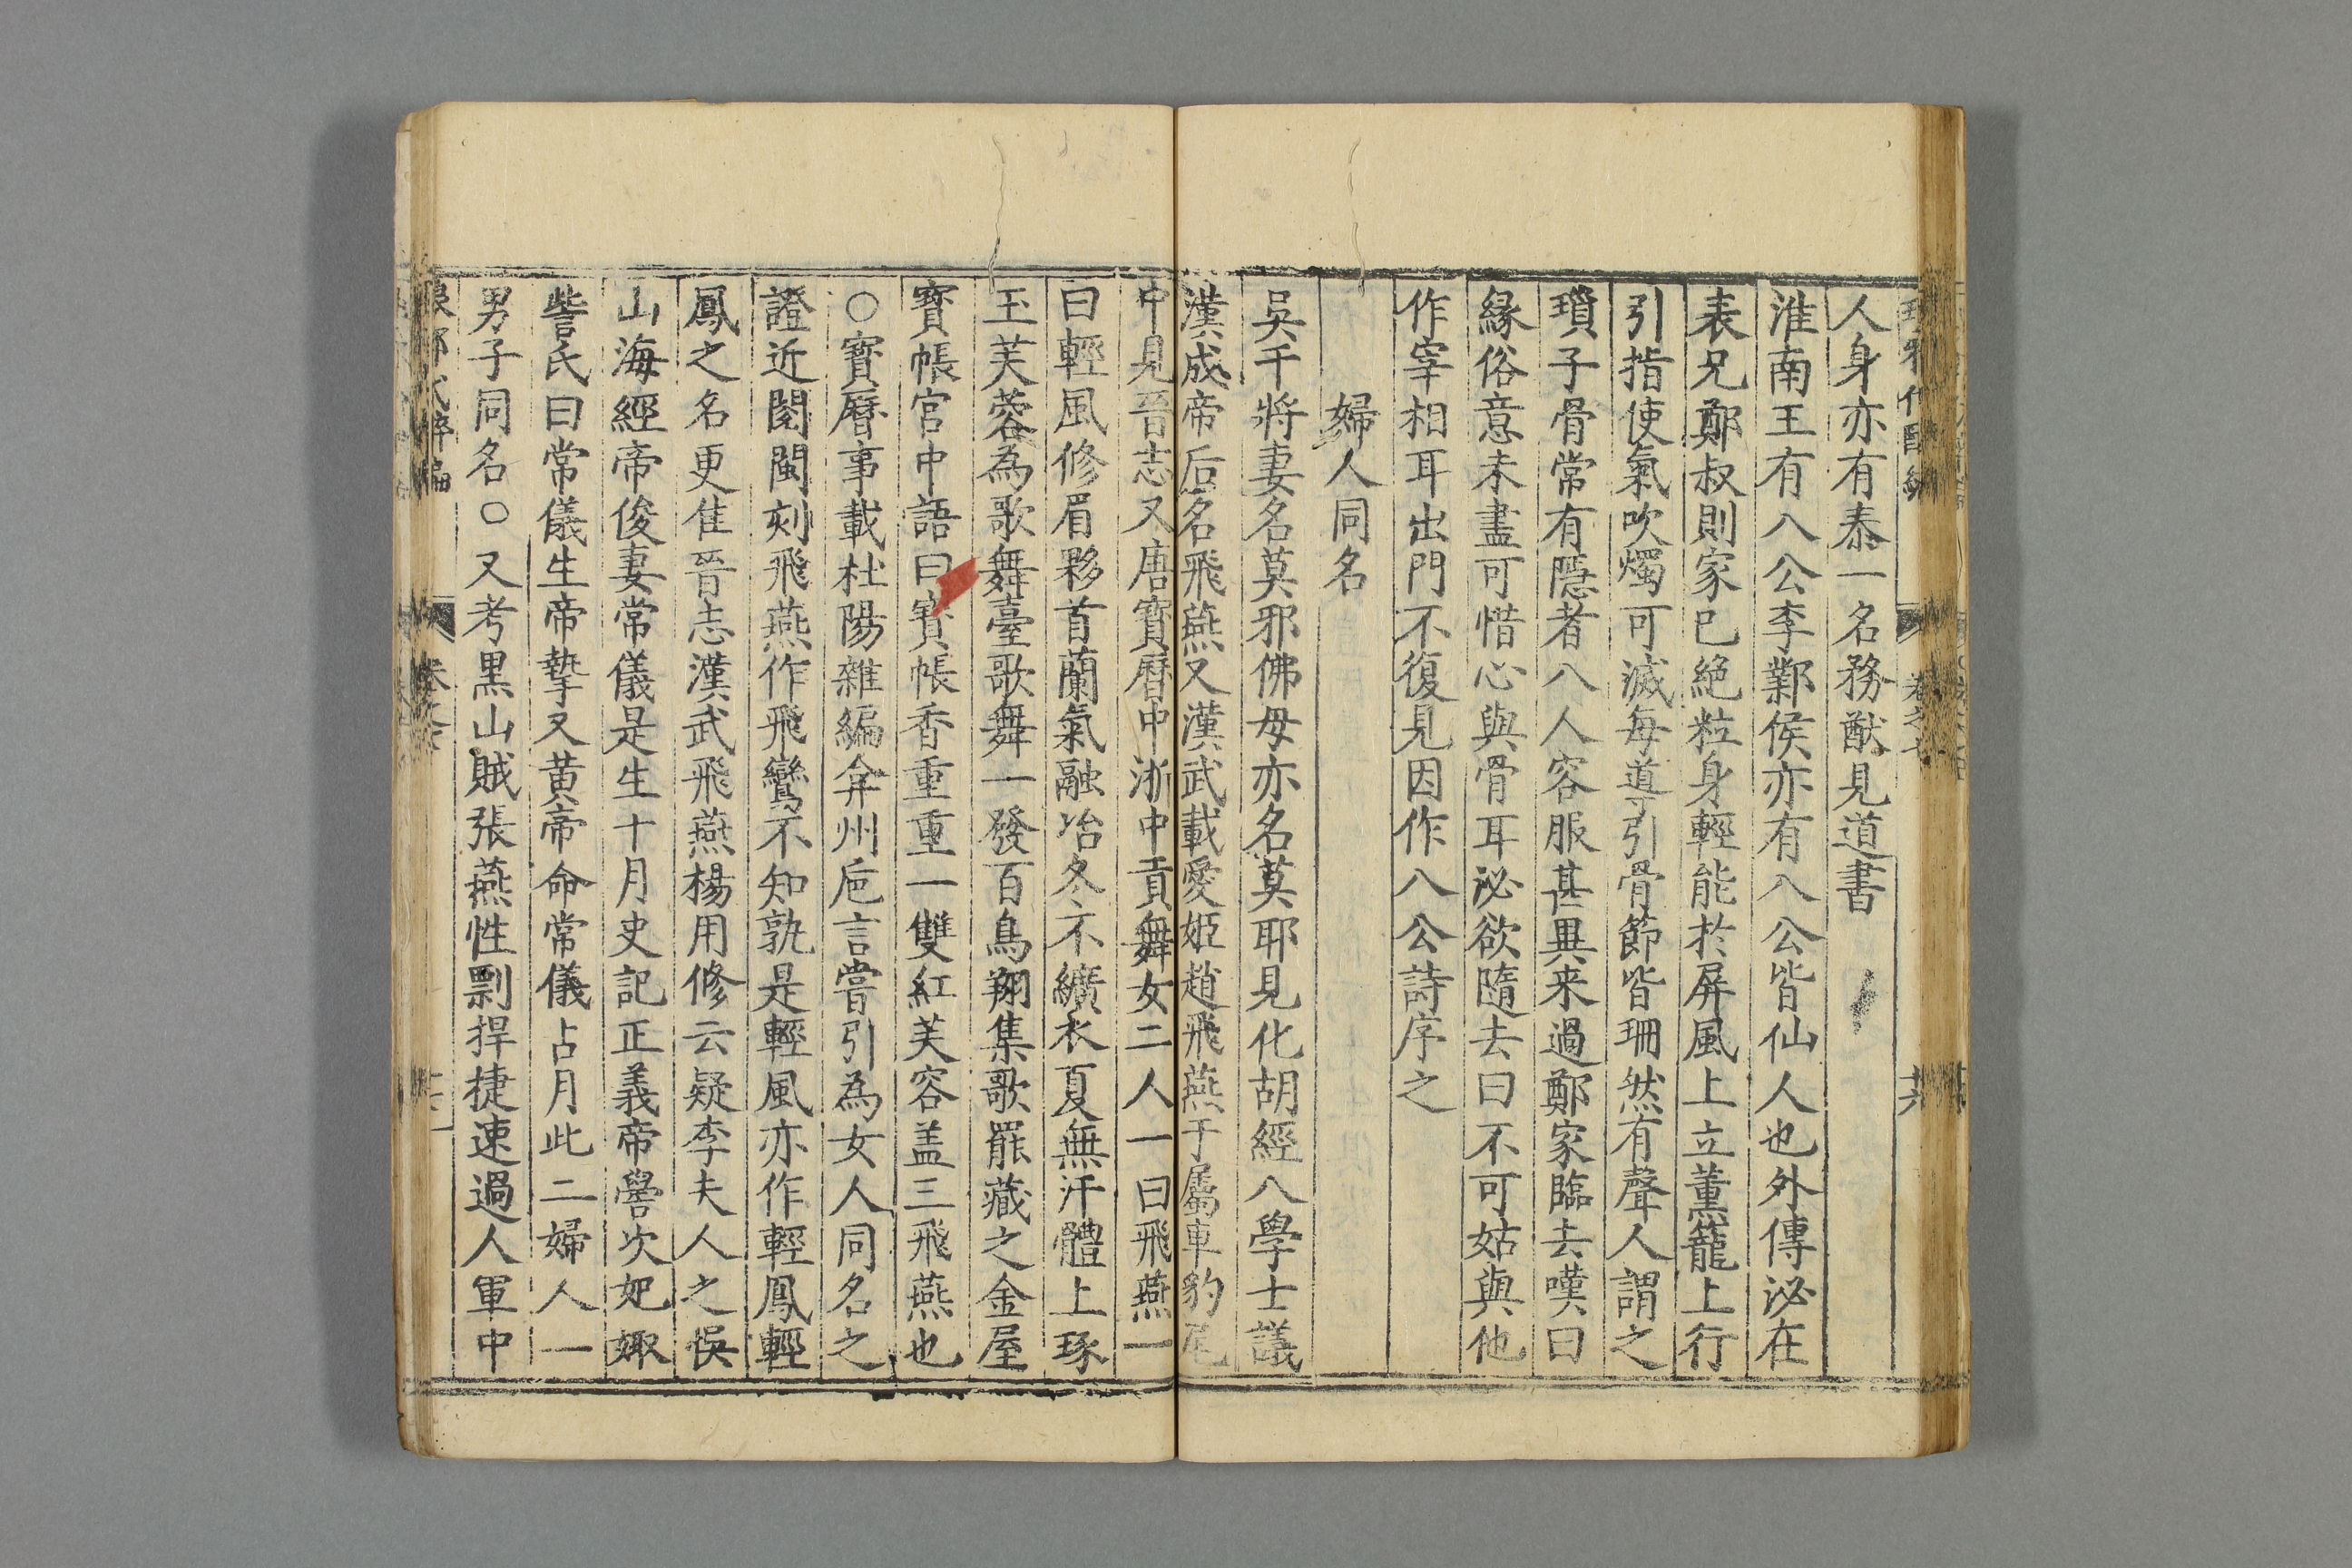 人身亦有泰一名務猷見道書
淮南王有八公李鄴侯亦有八公皆仙人也外傳泌在
表兄鄭叔則家已絶粒身輕能於屏風上立薰籠上行
引指使氣吹燭可滅每導引骨節皆珊然有聲人謂之
瑣子骨常有隱者八人容服甚異来過鄭家臨去嘆曰
縁俗意未盡可惜心與骨耳泌欲隨去曰不可姑與他
作宰相耳出門不復見因作八公詩序之
婦人同名
吳干將妻名莫邪佛母亦名莫耶見化胡經八學士議
漢成帝后名飛燕又漢武載愛姬趙飛燕于屬車豹尾
中見晉志又唐寳曆中浙中貢舞女二人一曰飛燕一
曰輕風修眉夥首蘭氣融冶冬不纊衣夏無汗體上琢
玉芙蓉為歌舞臺歌舞一發百鳥翔集歌罷藏之金屋
寳帳宫中語曰寳帳香重重一雙紅芙容盖三飛燕也
○寳曆事載杜陽雜編弇州巵言嘗引為女人同名之
證近閲閩刻飛燕作飛鸞不知孰是輕風亦作輕鳳輕
鳳之名更隹晉志漢武飛燕楊用修云疑李夫人之悞
山海經帝俊妻常儀是生十月史記正義帝嚳次妃娵
訾氏曰常儀生帝摯又黄帝命常儀占月此二婦人一
男子同名○又考黒山賊張燕性剽捍捷速過人軍中